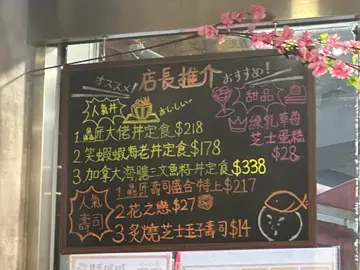 オススメ! 店長推介 おすすめ!
人氣丼 おいしい
1 大佬丼定食 $218
2 笑蝦蝦海老丼定食 $178
3 加拿大海膽三文魚籽丼定食 $338
甜品
煉乳草莓
芝士蛋糕
$28
人氣壽司
1. 匠壽司盛合 特上 $217
2. 花之戀 $27
3. 炙燒芝士玉子壽司 $14